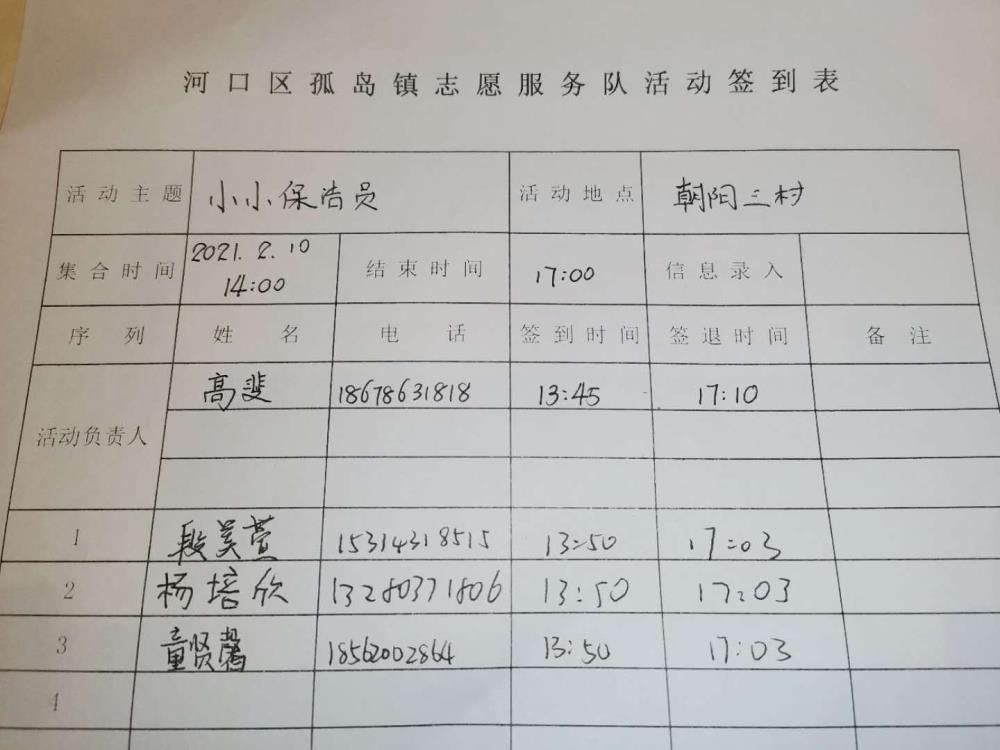 河口区孤岛镇志愿服务队活动签到表
活动主题 小小保洁员 活动地点 朝阳三村
集合时间 2021.2.10 14:00 结束时间 17:00 信息录入
序列 姓名 电话 签到时间 签退时间 备注
活动负责人 高斐 18678631818 13:45 17:10
1 段美萱 15314318515 13:50 17:03
2 杨培欣 13280371806 13:50 17:03
3 童贤馨 18562002864 13:50 17:03
4